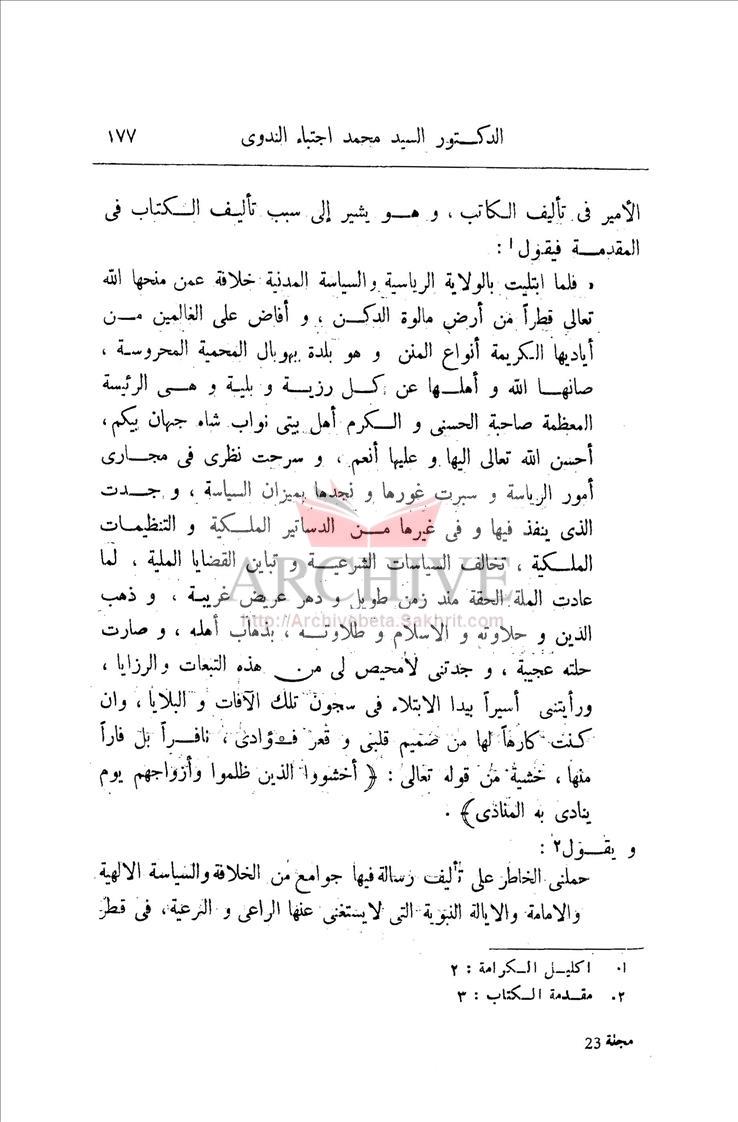 الدكتور السيد محمد اجتباء الندوى ١٧٧
الأمير فى تأليف الكاتب ، و هو يشير إلى سبب تأليف الكتاب فى
المقدمة فيقول١ :
« فلما ابتليت بالولاية الرياسية والسياسة المدنية خلافة عمن منحها الله
تعالى قطراً من أرض مالوة الدكن ، و أفاض على الغالمين من
أياديها الكريمة أنواع المنن و هو بلدة بهوبال المحمية المحروسة ،
صانها الله و أهلها عن كل رزية و بلية و هى الرئيسة
المعظمة صاحبة الحسنى و الكرم أهل بيتى نواب شاه جهان بيكم،
أحسن الله تعالى اليها و عليها أنعم ، و سرحت نظرى فى مجارى
أمور الرياسة و سبرت غورها و نجدها بميزان السياسة ، و جدت
الذى ينفذ فيها و فى غيرها من الدساتير الملكية و التنظيمات
الملكية ، تخالف السياسات الشرعية و تباين القضايا الملية ، لما
عادت الملة الحقة منذ زمن طويل و دهر عريض غريبة ، و ذهب
الدين و حلاوته و الاسلام و طلاوته ، بذهاب أهله ، و صارت
حلته عجيبة ، و جدتنى لامحيص لى من هذه التبعات والرزايا ،
ورأيتنى أسيراً بيدا الابتلاء فى سجون تلك الآفات و البلايا ، وان
كنت كارهاً لها من صميم قلبى و قعر فؤادى ، نافراً بل فاراً
منها ، خشية من قوله تعالى : ﴿ أخشووا الذين ظلموا وأزواجهم يوم
ينادى به المنادى﴾ .
و يقول٢ :
حملنى الخاطر على تأليف رسالة فيها جوامع من الخلافة والسياسة الالهية
والامامة والايالة النبوية التى لايستغنى عنها الراعى و الرعية، فى قطر
١. اكليل الكرامة : ٢
٢. مقدمة الكتاب : ٣
مجلة 23
ARCHIVE
http://Archivebeta.Sakhrit.com